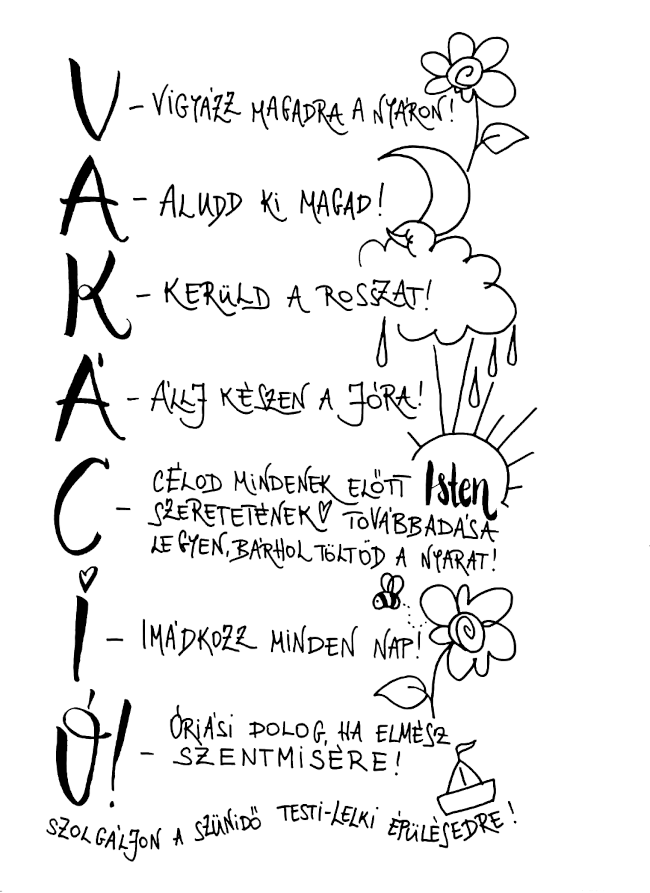 V – VIGYÁZZ MAGADRA A NYÁRON!
A – ALUDD KI MAGAD!
K – KERÜLD A ROSSZAT!
Á – ÁLLJ KÉSZEN A JÓRA!
C – CÉLOD MINDENEK ELŐTT Isten
SZERETETÉNEK TOVÁBBADÁSA
LEGYEN, BÁRHOL TÖLTÖD A NYARAT!
I – IMÁDKOZZ MINDEN NAP!
Ó! – ÓRIÁSI DOLOG, HA ELMÉSZ
SZENTMISÉRE!
SZOLGÁLJON A SZÜNIDŐ TESTI-LELKI ÉPÜLÉSEDRE!